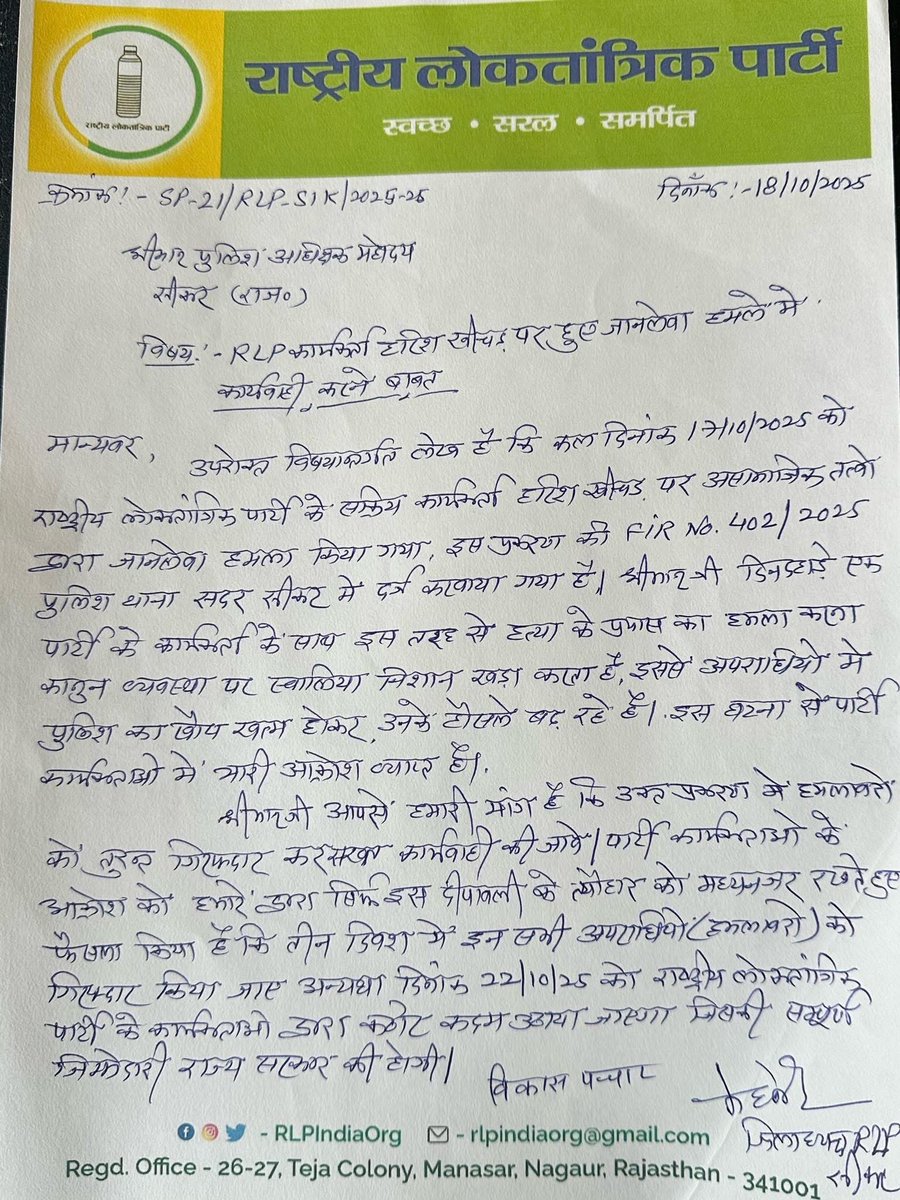 राष्ट्रीय लोकतांत्रिक पार्टी
राष्ट्रीय लोकतांत्रिक पार्टी
स्वच्छ • सरल • समर्पित
क्रमांक:- SP-21/RLP-SIK/2025-26
दिनाँक:-18/10/2025
श्रीमान पुलिश अधिक्षक महोदय
सीकर (राज०)
विषय:- RLP कार्यकर्ता हरिश खीचड़ पर हुए जानलेवा हमले में
कार्यवाही करने बाबत
मान्यवर,
उपरोक्त विषयान्तर्गत लेख है कि कल दिनांक 17/10/2025 को
राष्ट्रीय लोकतांत्रिक पार्टी के सक्रिय कार्यकर्ता हरिश खीचड़ पर असामाजिक तत्वो
द्वारा जानलेवा हमला किया गया, इस प्रकरण की FIR No. 402/2025
पुलिश थाना सदर सीकर मे दर्ज करवाया गया है। श्रीमानजी दिनदहाड़े एक
पार्टी के कार्यकर्ता के साथ इस तरह से हत्या के प्रयास का हमला करना
कानुन व्यवस्था पर स्वालिया निशान खड़ा करता है, इससे अपराधियो मे
पुलिश का खौप खत्म होकर, उनके हौसले बढ़ रहे है। इस घटना से पार्टी
कार्यकर्ताओ मे भारी आक्रोश व्याप्त है।
श्रीमानजी आपसे हमारी मांग है कि उक्त प्रकरण मे हमलावरो
को तुरन्त गिरफ्दार कर सख्त कार्यवाही की जावे। पार्टी कार्यकर्ताओ के
आक्रोश को हमारे द्वारा सिर्फ इस दीपावली के त्यौहार को मध्यनजर रखते हुए
फैसला किया है कि तीन दिवश मे इन सभी अपराधियो (हमलावरो) को
गिरफ्दार किया जाए अन्यथा दिनांक 22/10/25 को राष्ट्रीय लोकतांत्रिक
पार्टी के कार्यकर्ताओ द्वारा कठोर कदम उठाया जाएगा जिसकी सम्पूर्ण
जिम्मेदारी राज्य सरकार की होगी।
विकास पचार
जिलाध्यक्ष RLP
सीकर
- RLPIndiaOrg - rlpindiaorg@gmail.com
Regd. Office - 26-27, Teja Colony, Manasar, Nagaur, Rajasthan - 341001